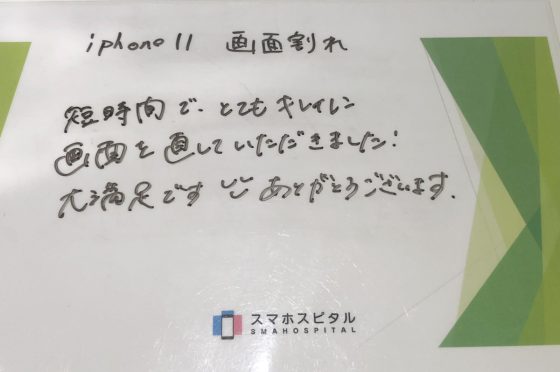 iphone 11 画面割れ
短時間で、とてもキレイに
画面を直していただきました!
大満足です ありがとうございます.
スマホスピタル
SMAHOSPITAL